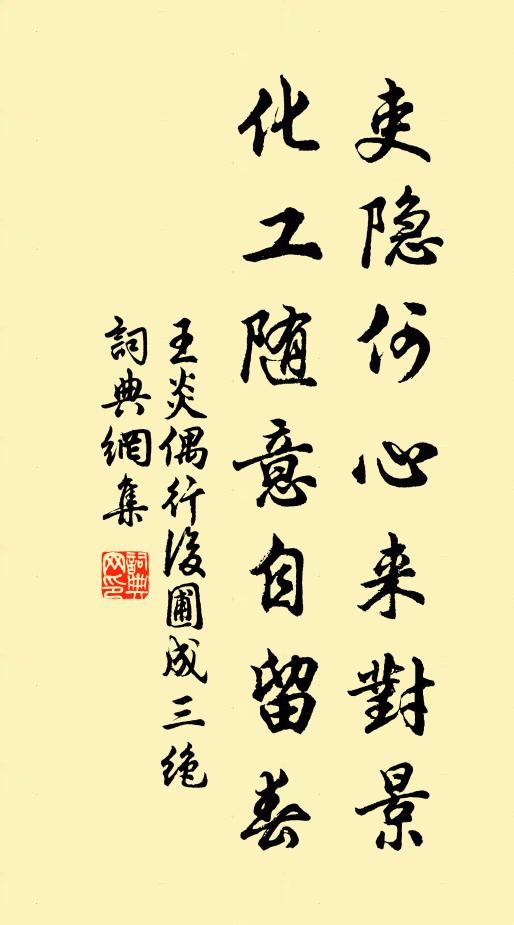 吏隐何心来對景
化工随意自留春
王炎偶行後圃成三绝
詞典網集
詞典网印